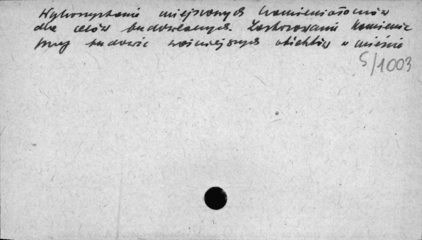 Wykorzystanie miejscowych kamieniołomów
dla celów budowlanych. Zastosowanie kamienia
przy budowie ważniejszych obiektów w mieście
5/1003